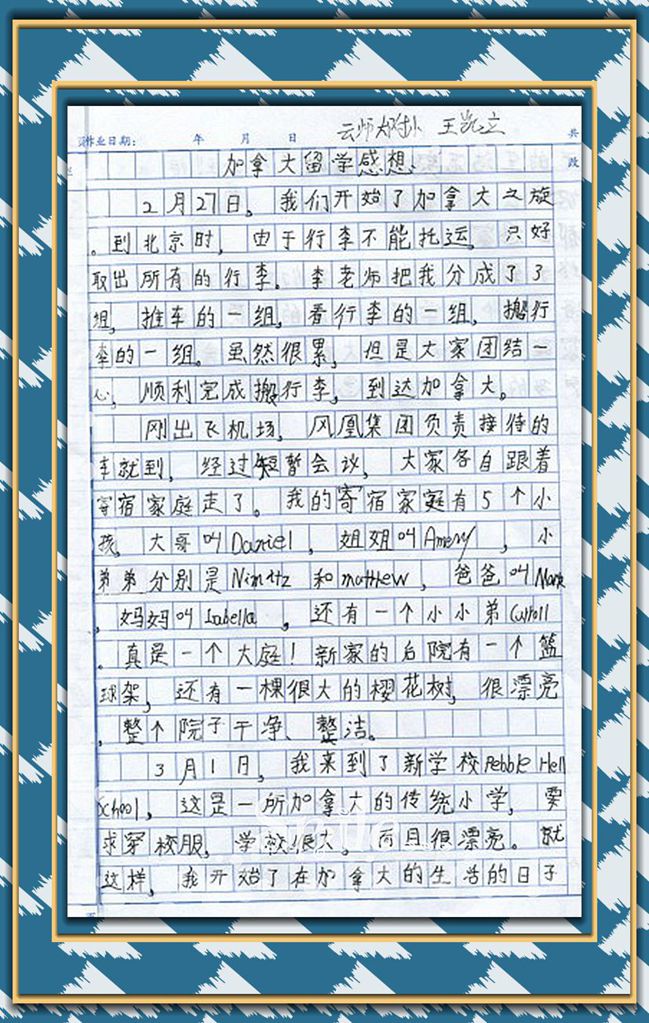 作业日期： 年 月 日 云师大附小 王凯立 共
加拿大留学感想.
2月27日，我们开始了加拿大之旅
。到北京时，由于行李不能托运，只好
取出所有的行李。李老师把我分成了3
组，推车的一组，看行李的一组，搬行
李的一组。虽然很累，但是大家团结一
心，顺利完成搬行李，到达加拿大。
刚出飞机场，凤凰集团负责接待的
车就到，经过短暂会议，大家各自跟着
寄宿家庭走了。我的寄宿家庭有5个小
孩，大哥叫Daniel，姐姐叫，小
弟弟分别是 和matthew，爸爸叫Mark
，妈妈叫Isabella，还有一个小小弟
。真是一个大庭！新家的后院有一个篮
球架，还有一棵很大的樱花树，很漂亮
，整个院子干净、整洁。
3月1日，我来到了新学校Pebble Hell
School，这是一所加拿大的传统小学，要
求穿校服，学校很大，而且很漂亮。就
这样，我开始了在加拿大的生活的日子